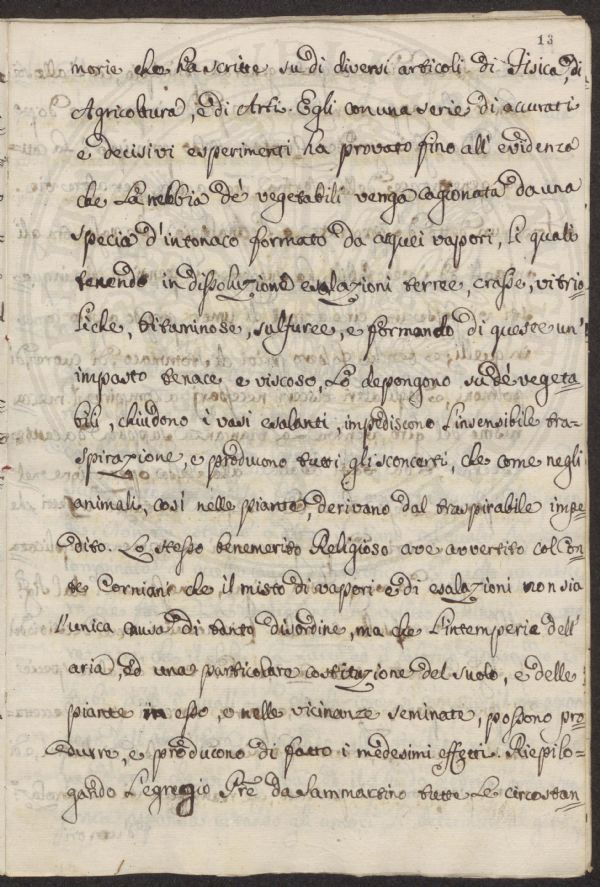 13
morie che ha scritte su di diversi articoli di Fisica, di
Agricoltura, e di Arti. Egli con una serie di accurati
e decisivi esperimenti ha provato fino all'evidenza
che La nebbia de' vegetabili venga cagionata da una
specia d'intonaco formato da acquei vapori, li quali
tenendo in dissoluzione esalazioni terree, crasse, vitrio=
liche, bitaminose, sulfuree, e formando di queste un'
impasto tenace e viscoso, Lo depongono su de' vegeta=
bili, chiudono i vasi esalanti, impediscono l'insensibile tra=
spirazione, e producono tutti gli sconcerti, che come negli
animali, così nelle piante, derivano dal traspirabile impe=
dito. Lo stesso benemerito Religioso ave avvertito col Con=
te Corniani che il misto di vapori e di esalazioni non sia
l'unica causa di tanto disordine, ma che L'intemperie dell'
aria, ed una particolare costituzione del suolo, e delle
piante in esso, e nelle vicinanze seminate, possono pro=
durre, e producono di fatto i medesimi effetti. Riepilo=
gando L'egregio Pre da Sammartino tutte Le circostan=